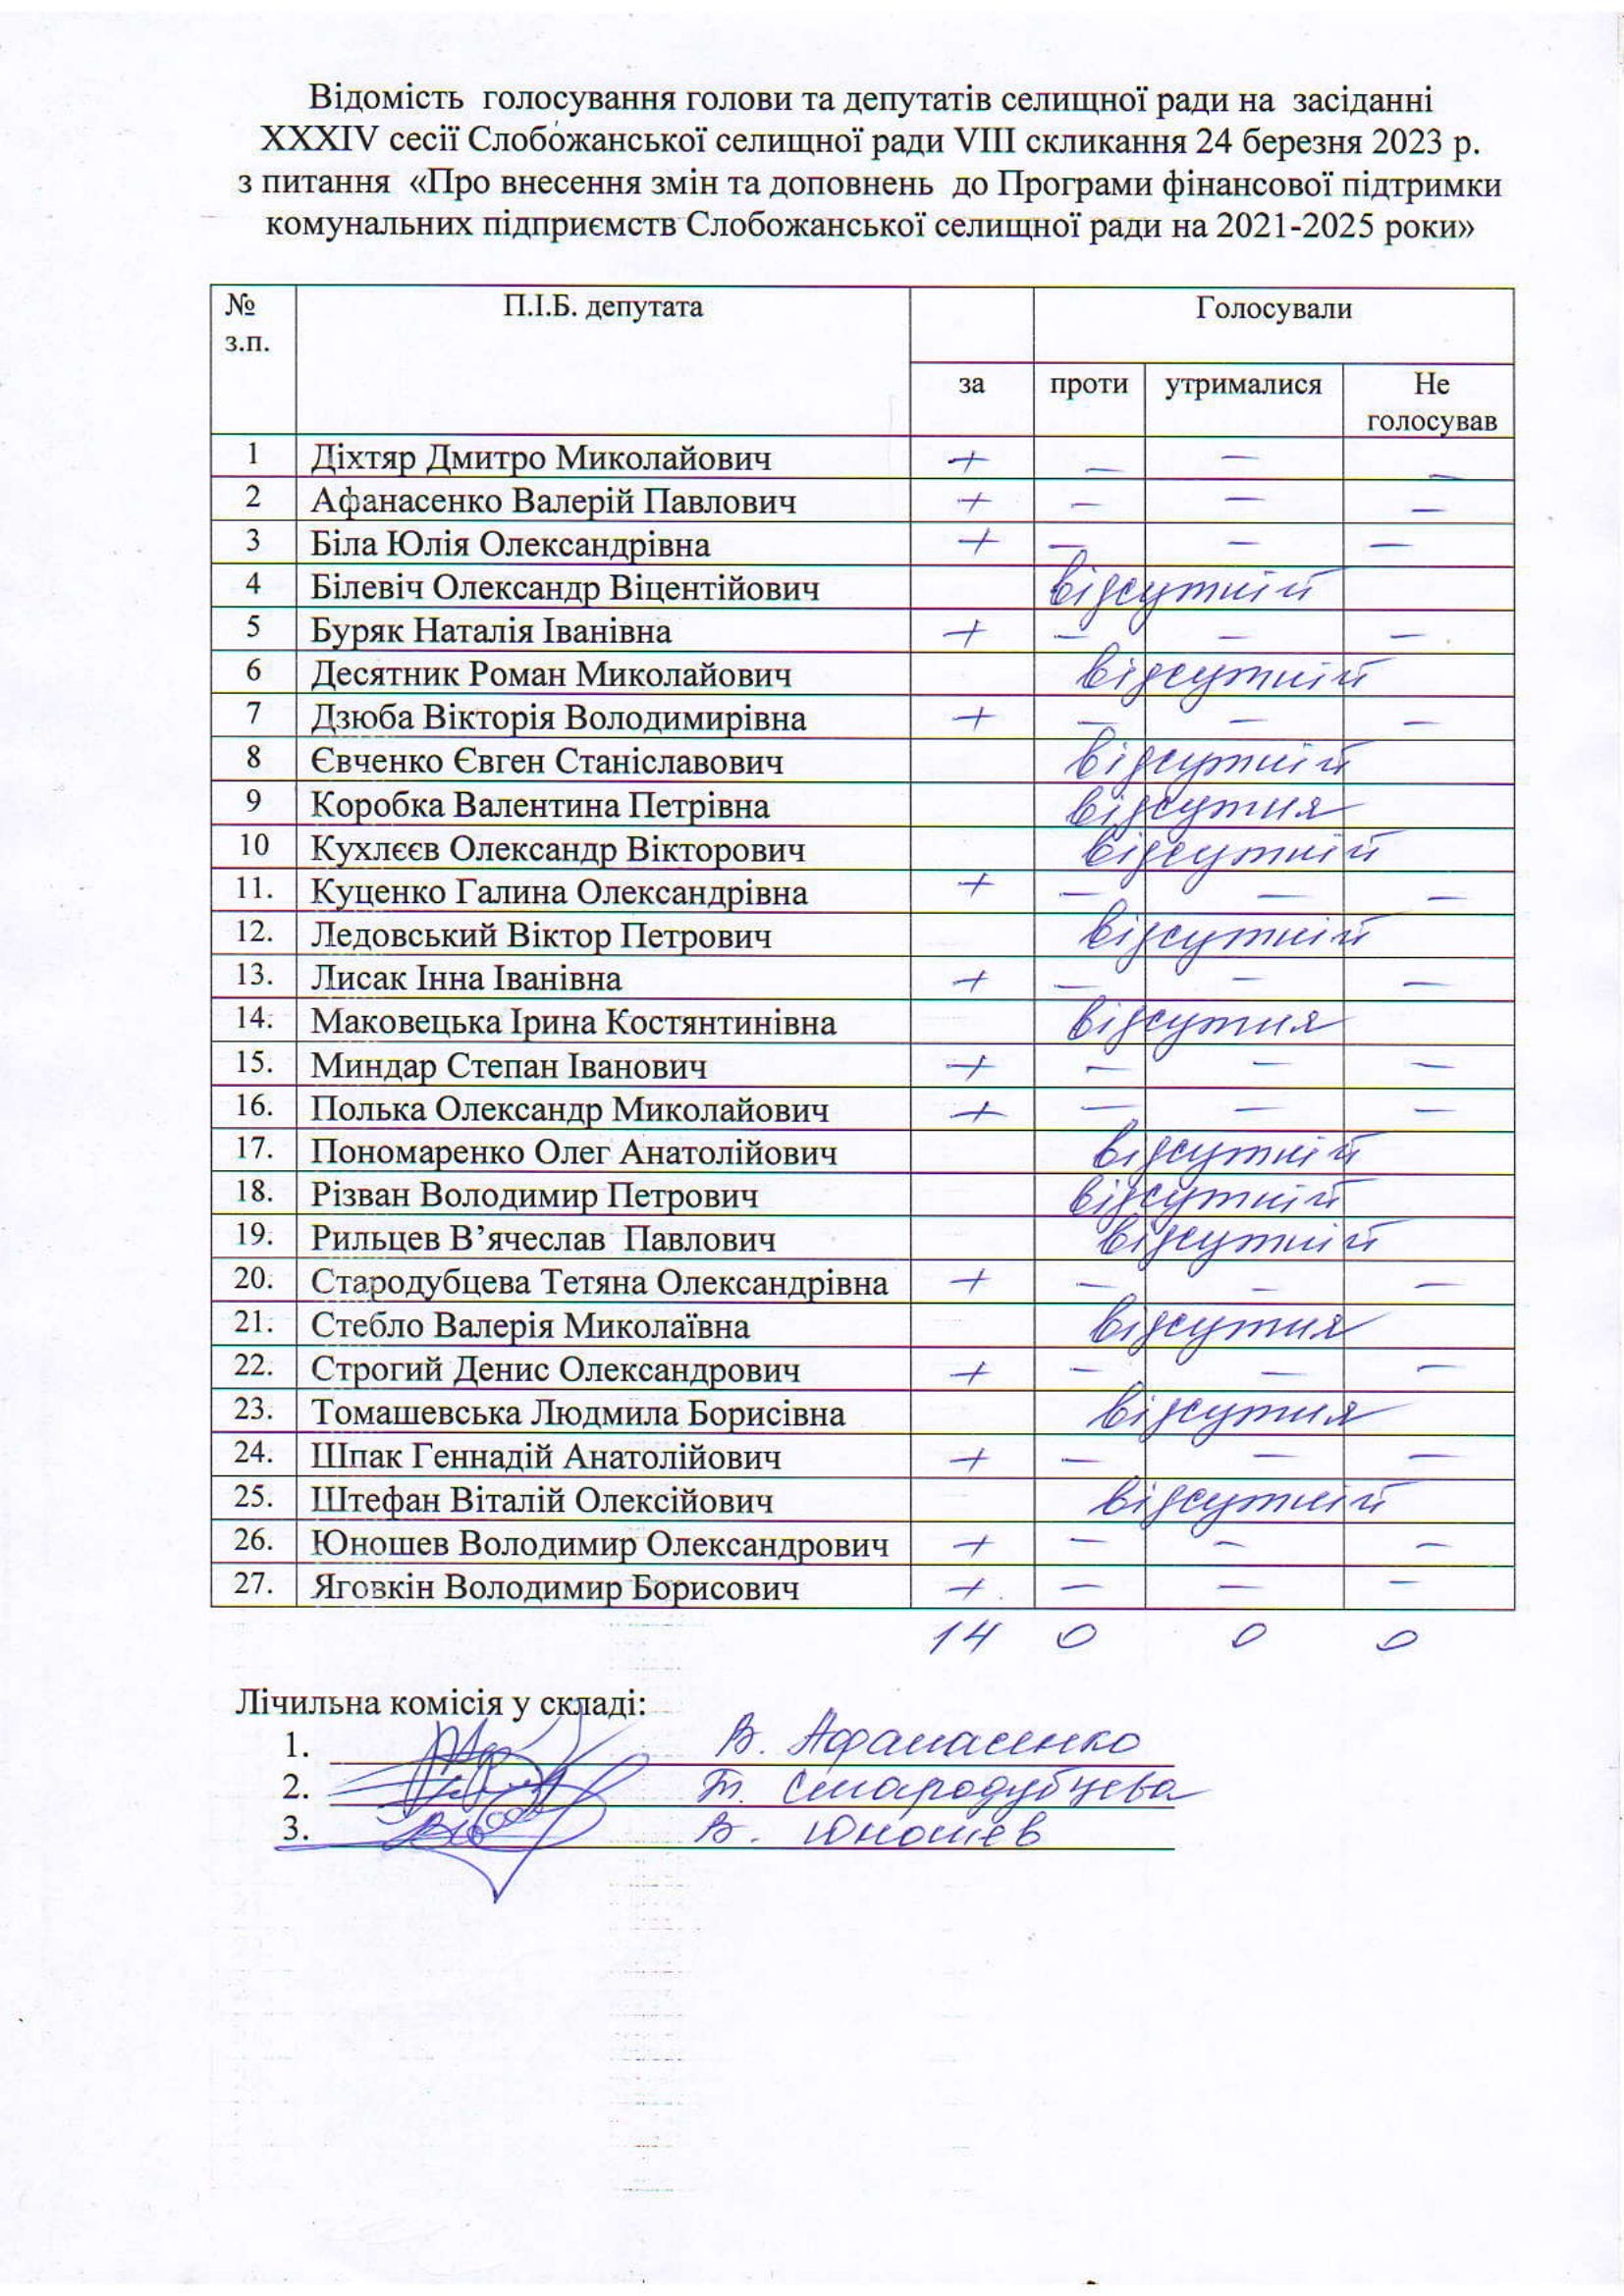 Відомість голосування голови та депутатів селищної ради на засіданні
XXXIV сесії Слобожанської селищної ради VIII скликання 24 березня 2023 р.
з питання «Про внесення змін та доповнень до Програми фінансової підтримки
комунальних підприємств Слобожанської селищної ради на 2021-2025 роки»
№ з.п. П.І.Б. депутата Голосували
за проти утрималися Не голосував
1 Діхтяр Дмитро Миколайович + — — —
2 Афанасенко Валерій Павлович + — — —
3 Біла Юлія Олександрівна + — — —
4 Білевіч Олександр Віцентійович відсутній
5 Буряк Наталія Іванівна + — — —
6 Десятник Роман Миколайович відсутній
7 Дзюба Вікторія Володимирівна + — — —
8 Євченко Євген Станіславович відсутній
9 Коробка Валентина Петрівна відсутня
10 Кухлєєв Олександр Вікторович відсутній
11. Куценко Галина Олександрівна + — — —
12. Ледовський Віктор Петрович відсутній
13. Лисак Інна Іванівна + — — —
14. Маковецька Ірина Костянтинівна відсутня
15. Миндар Степан Іванович + — — —
16. Полька Олександр Миколайович + — — —
17. Пономаренко Олег Анатолійович відсутній
18. Різван Володимир Петрович відсутній
19. Рильцев В’ячеслав Павлович відсутній
20. Стародубцева Тетяна Олександрівна + — — —
21. Стебло Валерія Миколаївна відсутня
22. Строгий Денис Олександрович + — — —
23. Томашевська Людмила Борисівна відсутня
24. Шпак Геннадій Анатолійович + — — —
25. Штефан Віталій Олексійович відсутній
26. Юношев Володимир Олександрович + — — —
27. Яговкін Володимир Борисович + — — —
14 0 0 0
Лічильна комісія у складі:
1. В. Афанасенко
2. Т. Стародубцева
3. В. Юношев